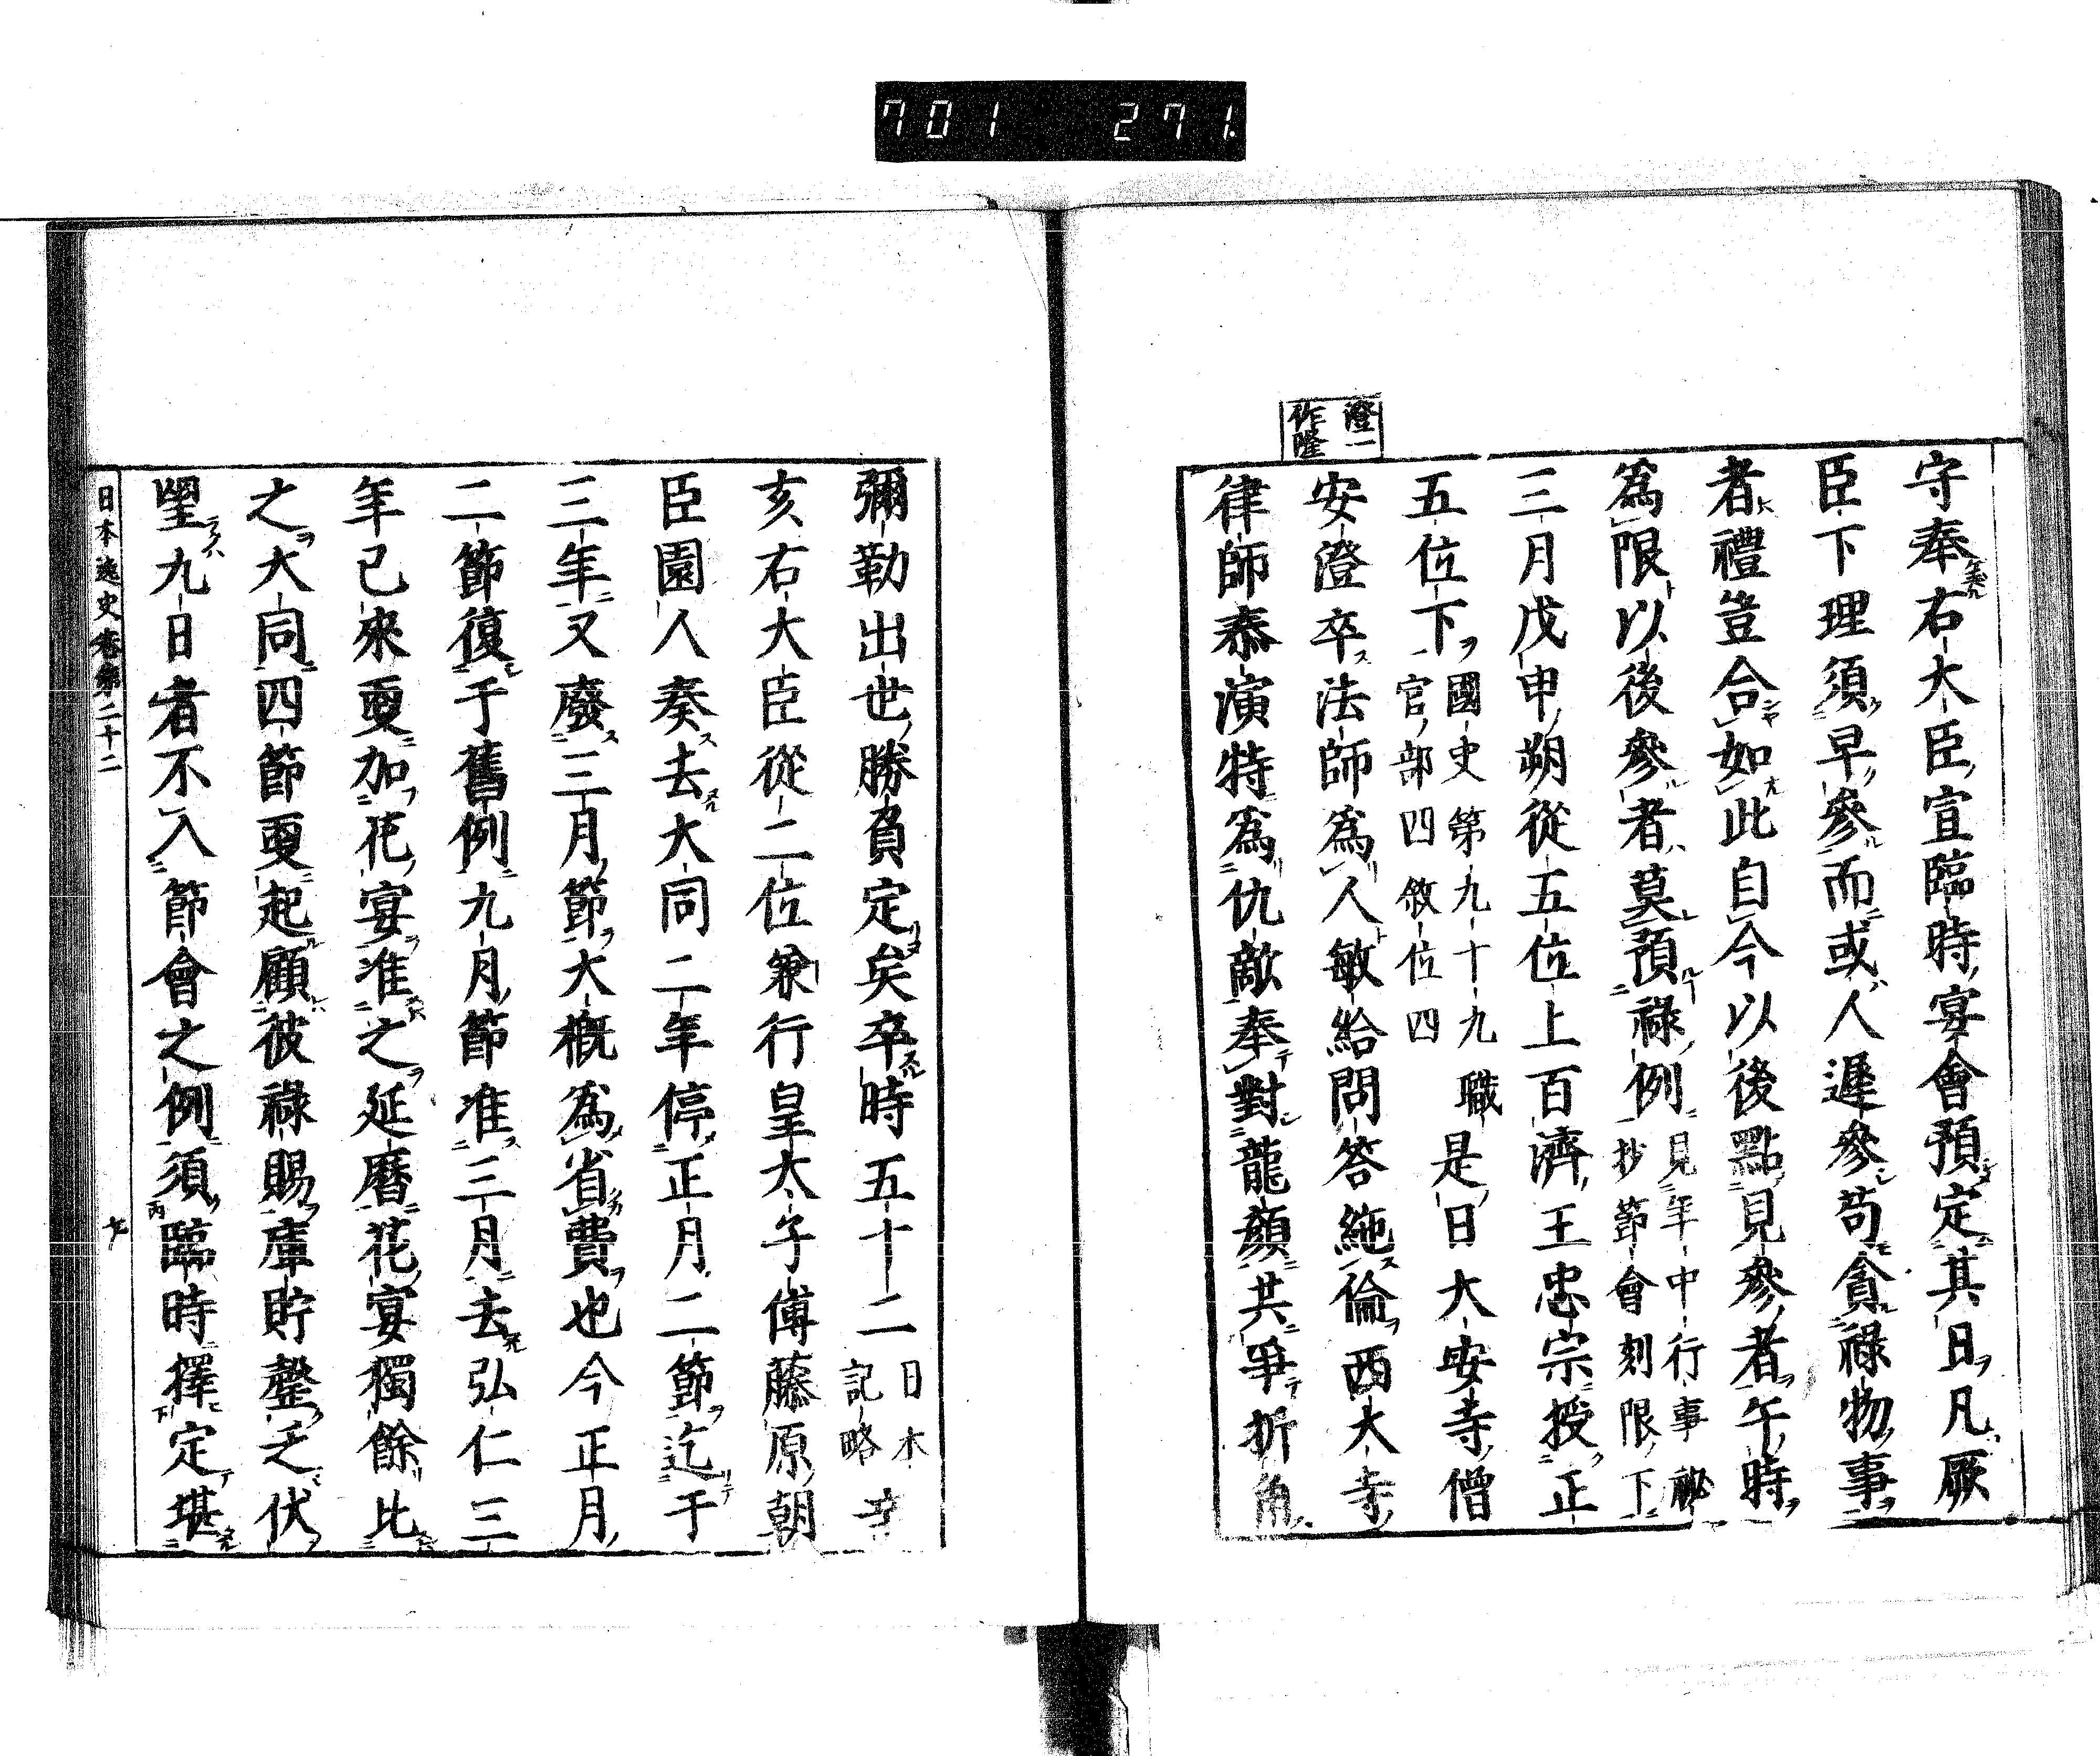 701 271.
守奉右大臣宣臨時宴會預定其日凡厥
臣下理須早參而或人遲參苟貪祿物事
者禮豈合如此自今以後點見參者午時
爲限以後參者莫預祿例見年中行事祕
抄節會刻限下
三月戊申朔從五位上百濟王忠宗授正
五位下國史第九十九職
官部四敘位四
是日大安寺僧
安澄卒法師爲人敏給問答絶倫西大寺
澄一
作隆
律師泰演特爲仇敵奉對龍顏共爭折角
彌勒出世勝負定矣卒時五十二日本
記略
辛
亥右大臣從二位兼行皇太子傅藤原朝
臣園人奏去大同二年停正月二節迄于
三年又廢三月節大概爲省費也今正月
二節復于舊例九月節准三月去弘仁三
年已來更加花宴准之延曆花宴獨餘比
之大同四節更起顧彼祿賜庫貯罄乏伏
望九日者不入節會之例須臨時擇定堪
日本逸史卷第二十二